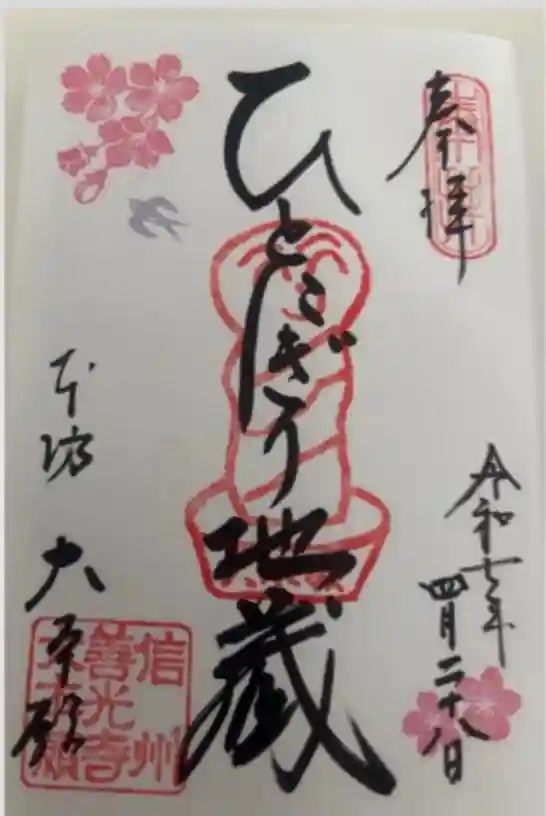 奉拝
令和七年
四月二十八日
ひとにぎり地蔵
本坊 大本願
信州
善光寺
大本願